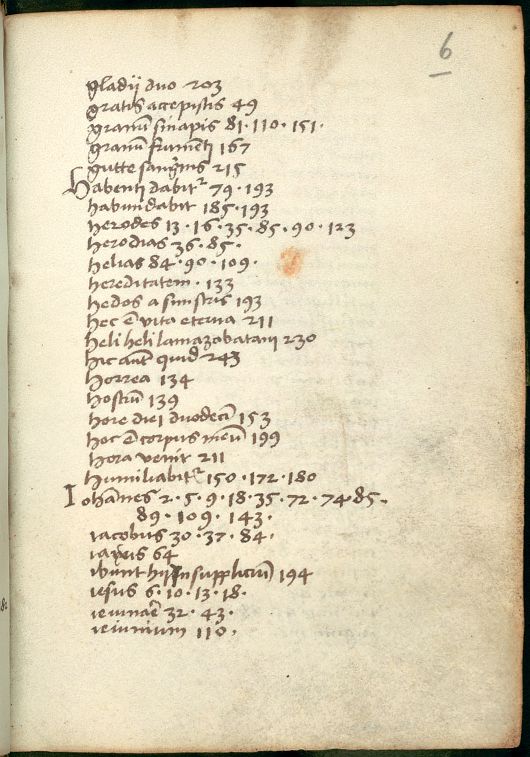 6
gladij duo 203
gratis accepistis 49
granū sinapis 81 · 110 · 151 ·
granū frumēti 167
gutte sanguinis 215
Habenti dabit᷑ 79 · 193
habundabit 185 · 193
herodes 13 · 16 · 35 · 85 · 90 · 123
herodias 36 · 85 ·
helias 84 · 90 · 109 ·
hereditatem · 133
hedos a sinistris 193
hec ē vita eterna 211
heli heli lamazabatani 230
hic aūt quid 243
horrea 134
hostiū 139
hore diei duodecī 153
hoc ē corpus meū 199
hora venit 211
humiliabit᷑ 150 · 172 · 180
Iohānes 2 · 5 · 9 · 18 · 35 · 72 · 74 · 85 ·
89 · 109 · 143 ·
iacobus 30 · 37 · 84 ·
iayrus 64
ibunt hij in suppliciū 194
iesus 6 · 10 · 13 · 18 ·
ieiunare 32 · 43 ·
ieiunium 110 ·